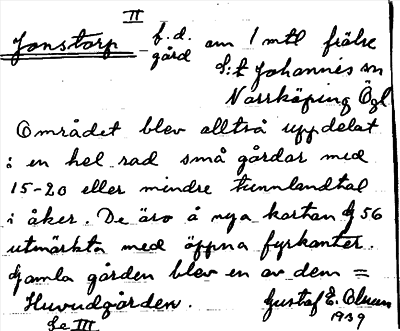 II
Jonstorp f.d. gård om 1 mtl frälse
S:t Johannis sn
Norrköping Ögl
Området blev alltså uppdelat
i en hel rad små gårdar med
15-20 eller mindre tunnlandtal
i åker. De äro å nya kartan G 56
utmärkta med öppna fyrkanter.
Gamla gården blev en av dem =
Huvudgården. Gustaf E. Olsson
Se III 1939